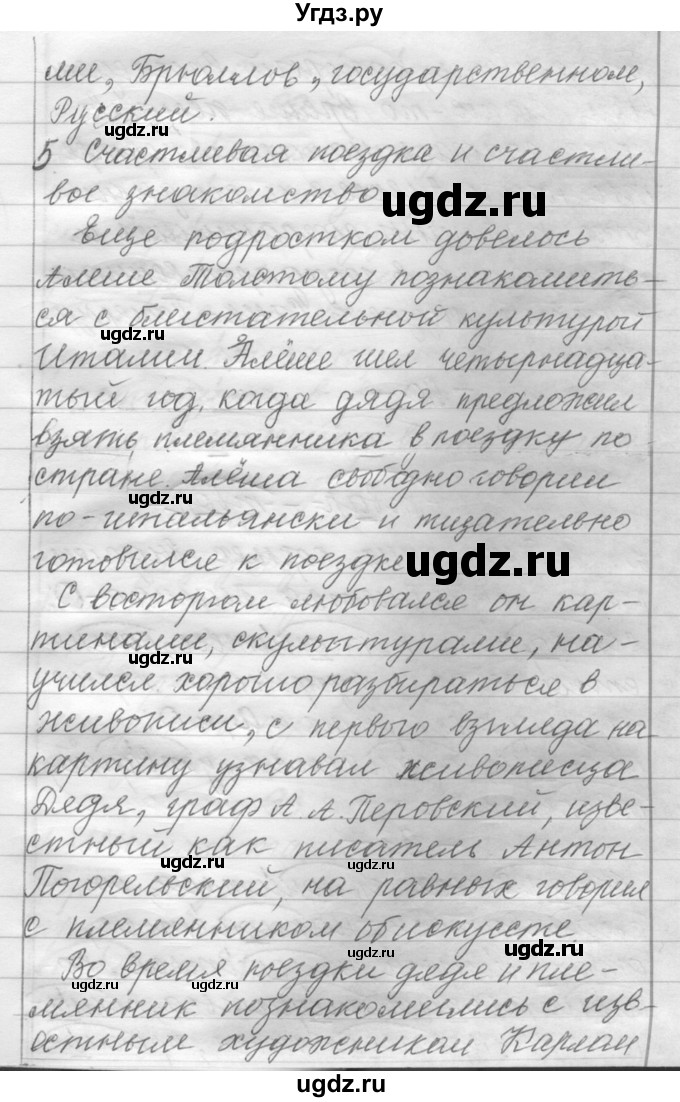 Угдз.ру
ми, Брюллов, государственном,
Русский.
ugdz.ru
5 Счастливая поездка и счастли-
вое знакомство
ugdz.ru
Еще подростком довелось
Алеше Толстому познакомить-
ся с блистательной культурой
ugdz.ru
Италии. Алёше шел четырнадца-
тый год, когда дядя предложил
взять племянника в поездку по
стране. Алёша свободно говорил
ugdz.ru
по-итальянски и тщательно
готовился к поездке
ugdz.ru
С восторгом любовался он кар-
тинами, скульптурами, на-
ugdz.ru
учился хорошо разбираться в
живописи, с первого взгляда на
картину узнавал живописца
Дядя, граф А. А. Перовский, изве-
стный как писатель Антон
ugdz.ru
ugdz.ru
Погорельский, на равных говорил
с племянником об искуссте
ugdz.ru
ugdz.ru
Во время поездки дядя и пле-
ugdz.ru
мянник познакомились с изв-
остным художником Карлом
ugdz.ru